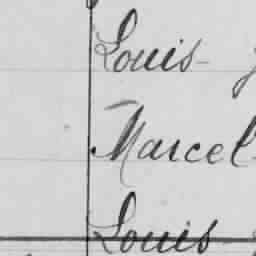 Louis
Marcel
Louis